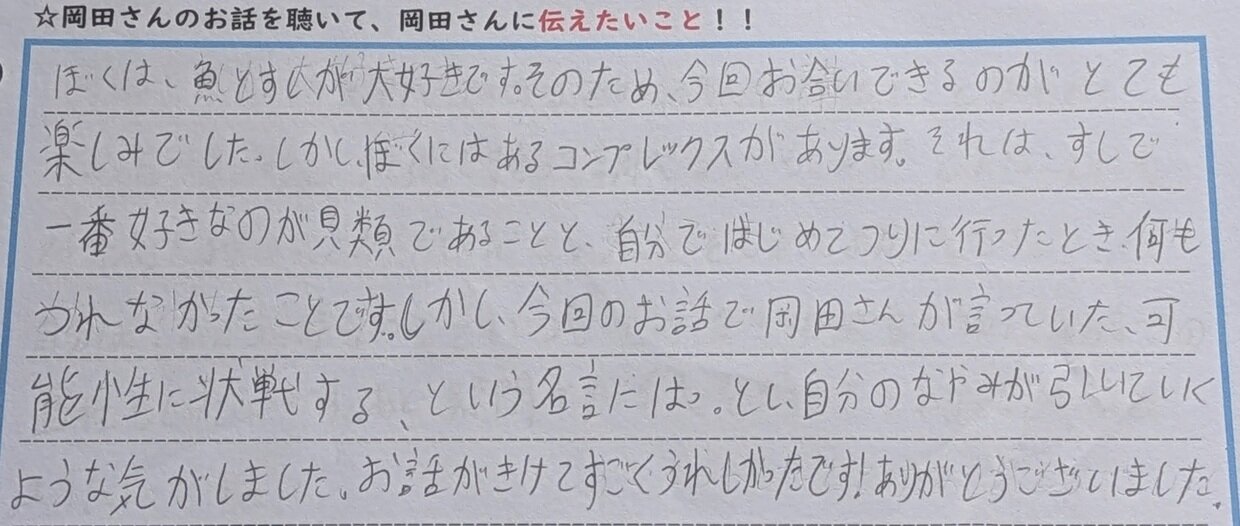 ☆岡田さんのお話を聴いて、岡田さんに伝えたいこと！！
ぼくは、魚とすしが大好きです。そのため、今回お会いできるのがとても
楽しみでした。しかし、ぼくにはあるコンプレックスがあります。それは、すしで
一番好きなのが貝類であることと、自分ではじめてつりに行ったとき、何も
つれなかったことです。しかし、今回のお話で岡田さんが言っていた、可
能性に挑戦する、という名言にはっとし、自分のなやみが引いていく
ような気がしました。お話がきけてすごくうれしかったです！ありがとうございました。